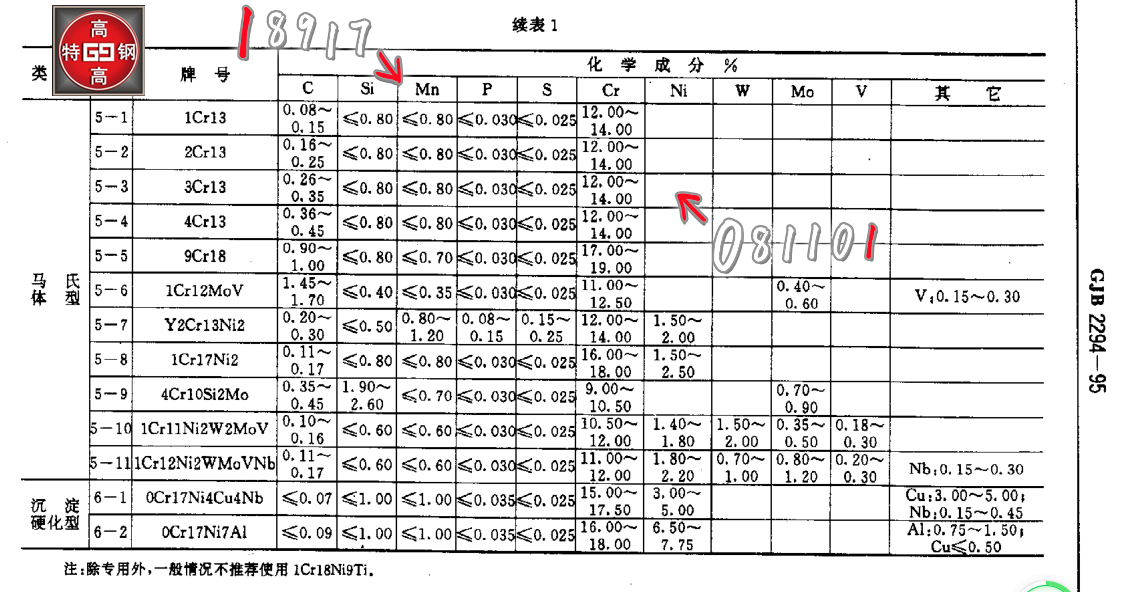 续表 1
18917
高
特 GG 钢
高
类
牌 号
化 学 成 分 %
C Si Mn P S Cr Ni W Mo V 其 它
马 氏
体 型
5-1 1Cr13 0.08~0.15 ≤0.80 ≤0.80 ≤0.030 ≤0.025 12.00~14.00
5-2 2Cr13 0.16~0.25 ≤0.80 ≤0.80 ≤0.030 ≤0.025 12.00~14.00
5-3 3Cr13 0.26~0.35 ≤0.80 ≤0.80 ≤0.030 ≤0.025 12.00~14.00
5-4 4Cr13 0.36~0.45 ≤0.80 ≤0.80 ≤0.030 ≤0.025 12.00~14.00
0811101
5-5 9Cr18 0.90~1.00 ≤0.80 ≤0.70 ≤0.030 ≤0.025 17.00~19.00
5-6 1Cr12MoV 1.45~1.70 ≤0.40 ≤0.35 ≤0.030 ≤0.025 11.00~12.50 0.40~0.60 V:0.15~0.30
5-7 Y2Cr13Ni2 0.20~0.30 ≤0.50 0.80~1.20 0.08~0.15 0.15~0.25 12.00~14.00 1.50~2.00
5-8 1Cr17Ni2 0.11~0.17 ≤0.80 ≤0.80 ≤0.030 ≤0.025 16.00~18.00 1.50~2.50
5-9 4Cr10Si2Mo 0.35~0.45 1.90~2.60 ≤0.70 ≤0.030 ≤0.025 9.00~10.50 0.70~0.90
5-10 1Cr11Ni2W2MoV 0.10~0.16 ≤0.60 ≤0.60 ≤0.030 ≤0.025 10.50~12.00 1.40~1.80 1.50~2.00 0.35~0.50 0.18~0.30
5-11 1Cr12Ni2WMoVNb 0.11~0.17 ≤0.60 ≤0.60 ≤0.030 ≤0.025 11.00~12.00 1.80~2.20 0.70~1.00 0.80~1.20 0.20~0.30 Nb:0.15~0.30
沉 淀
硬化型
6-1 0Cr17Ni4Cu4Nb ≤0.07 ≤1.00 ≤1.00 ≤0.035 ≤0.025 15.00~17.50 3.00~5.00 Cu:3.00~5.00; Nb:0.15~0.45
6-2 0Cr17Ni7Al ≤0.09 ≤1.00 ≤1.00 ≤0.035 ≤0.025 16.00~18.00 6.50~7.75 Al:0.75~1.50; Cu≤0.50
注:除专用外,一般情况不推荐使用 1Cr18Ni9Ti.
GJB 2294—95